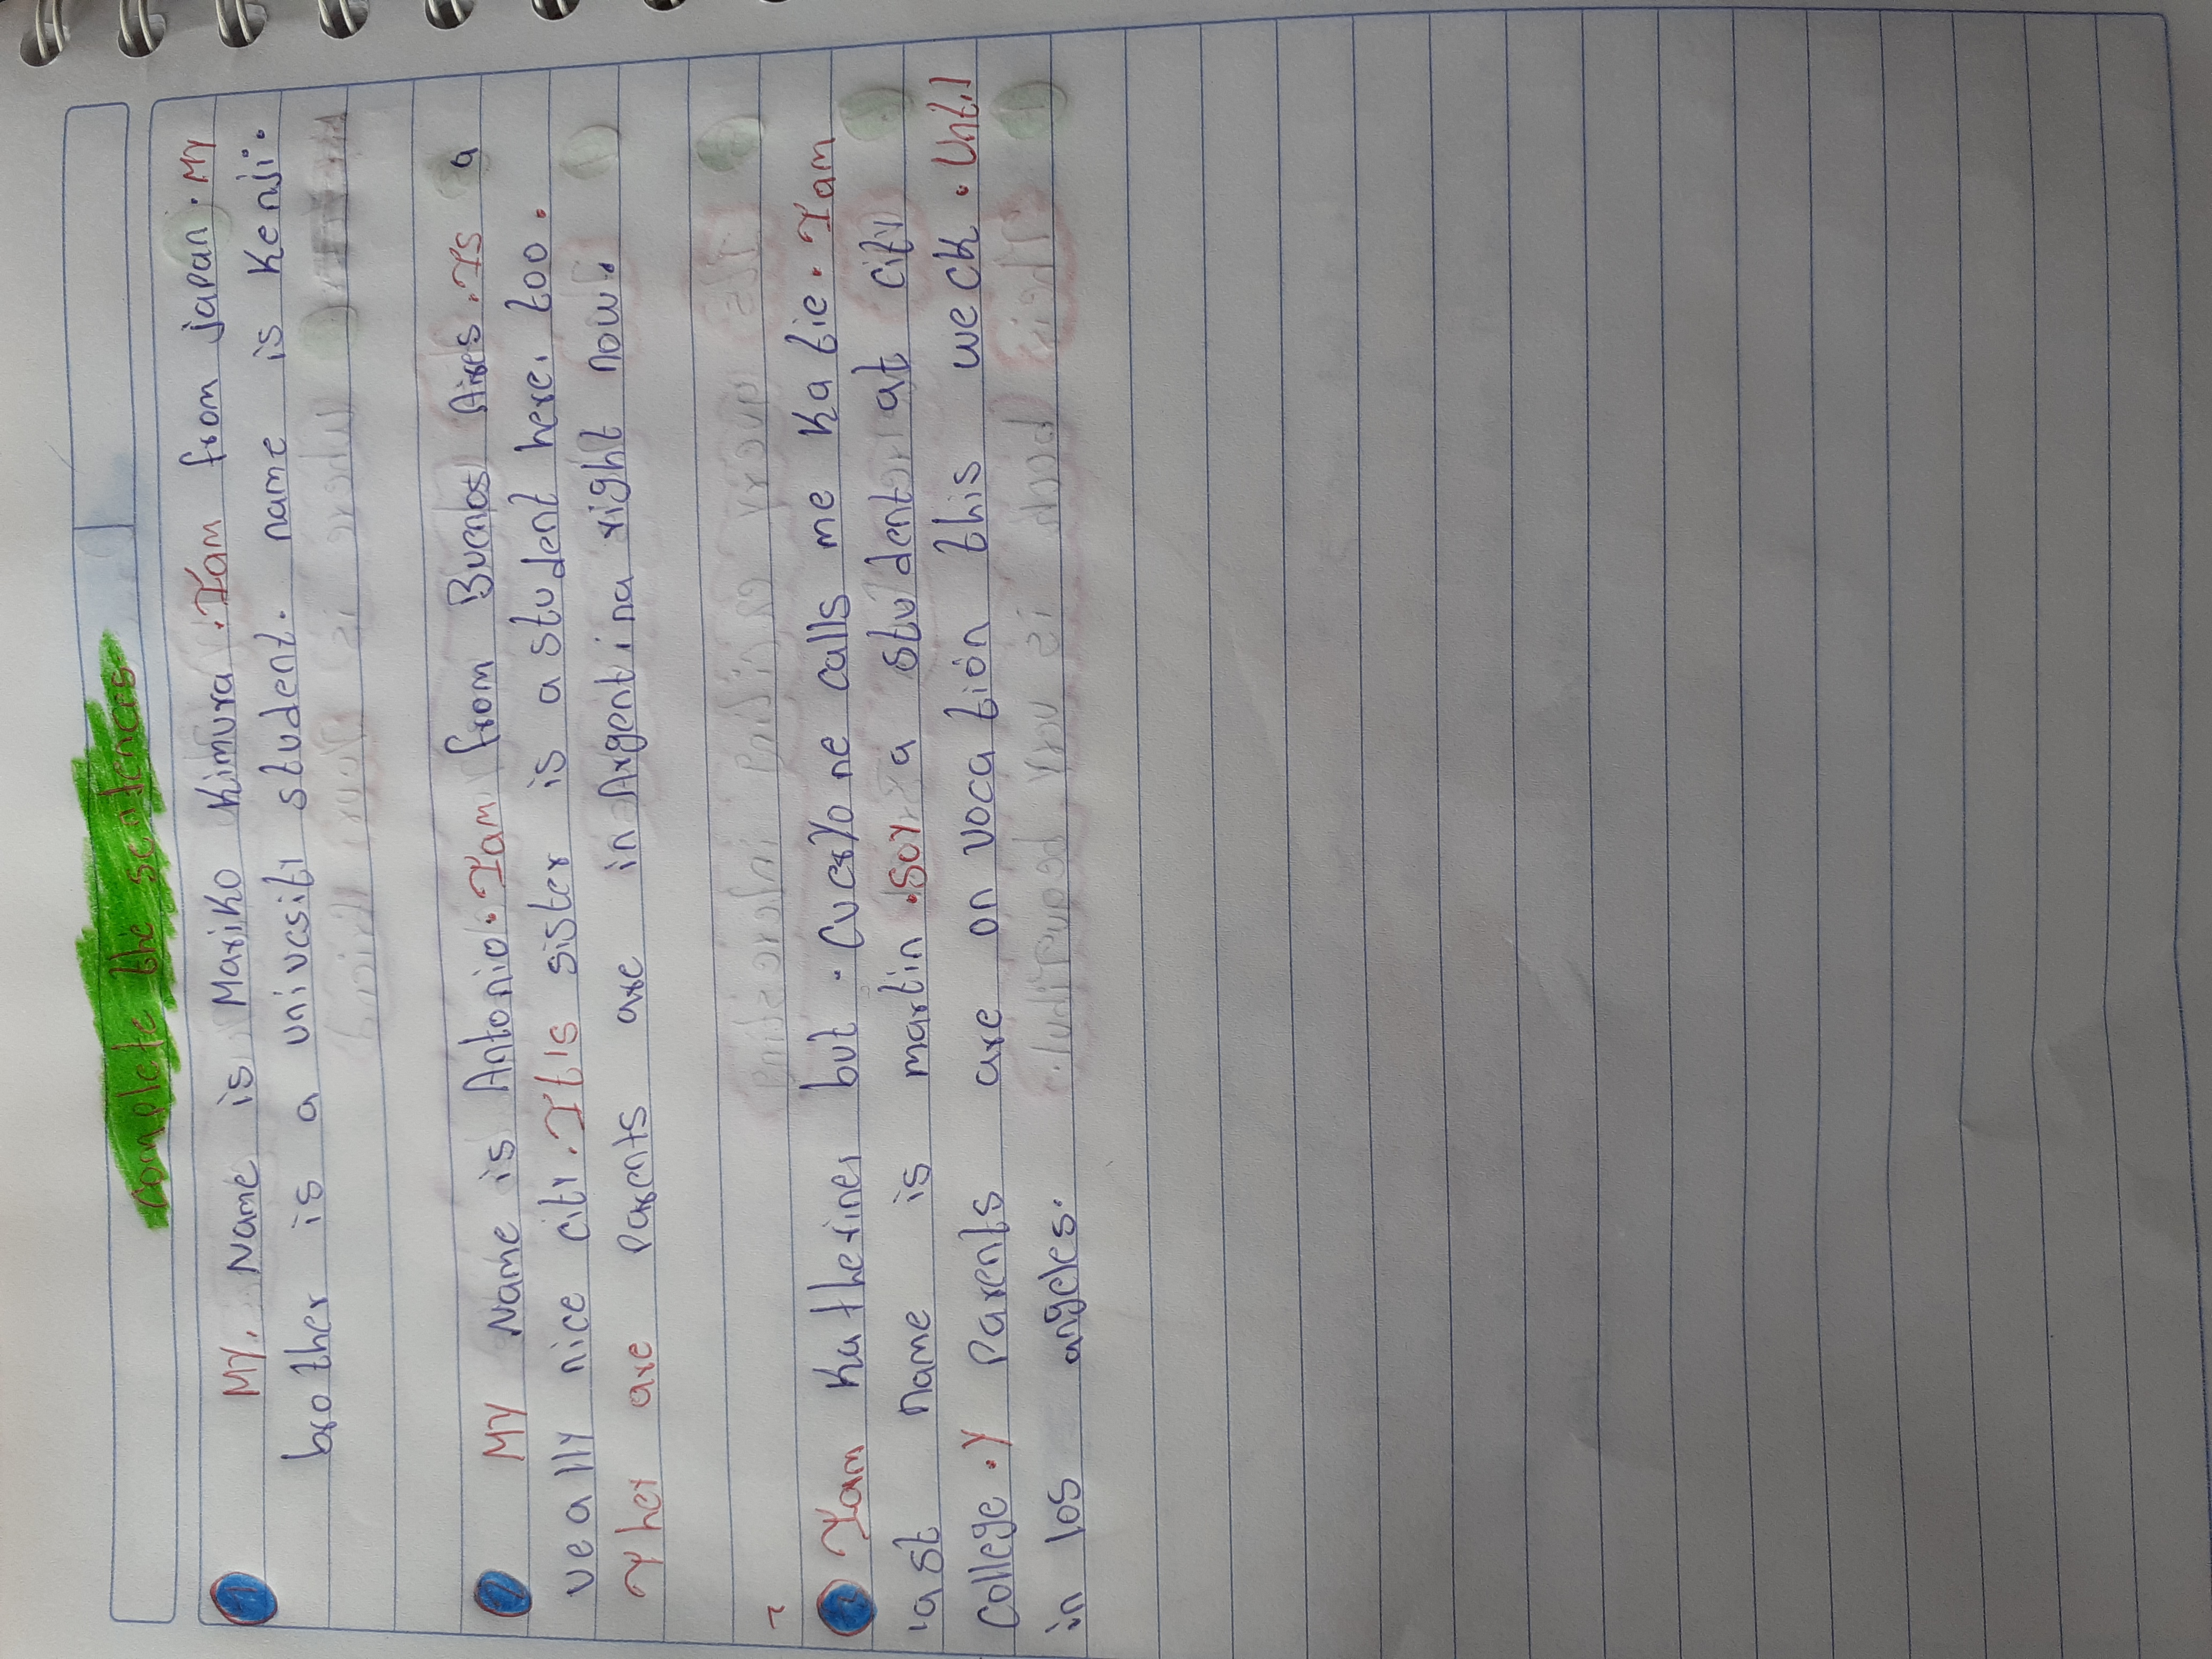 complete the sentences
1 My, Name is Mariko Kimura . I am from japan. My
brother is a univesity student. name is Kenji.
2 My Name is Antonio. I am from Buenos Aires. Is a
veally nice city. It is sister is a student here. too.
They are Parents are in Argentina right now.
I am Katherine, but . Cveryone calls me Katie. I am
last name is martin . Soy a student at city
College . y Parents are on vocatión this week . Until
in los angeles.